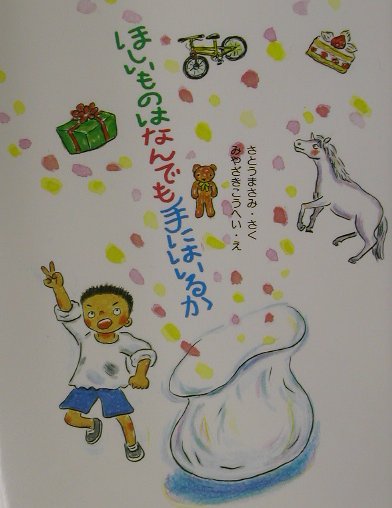 ほしいものはなんでも手にはいるか
さとうまさみ・さく
みやざきこうへい・え